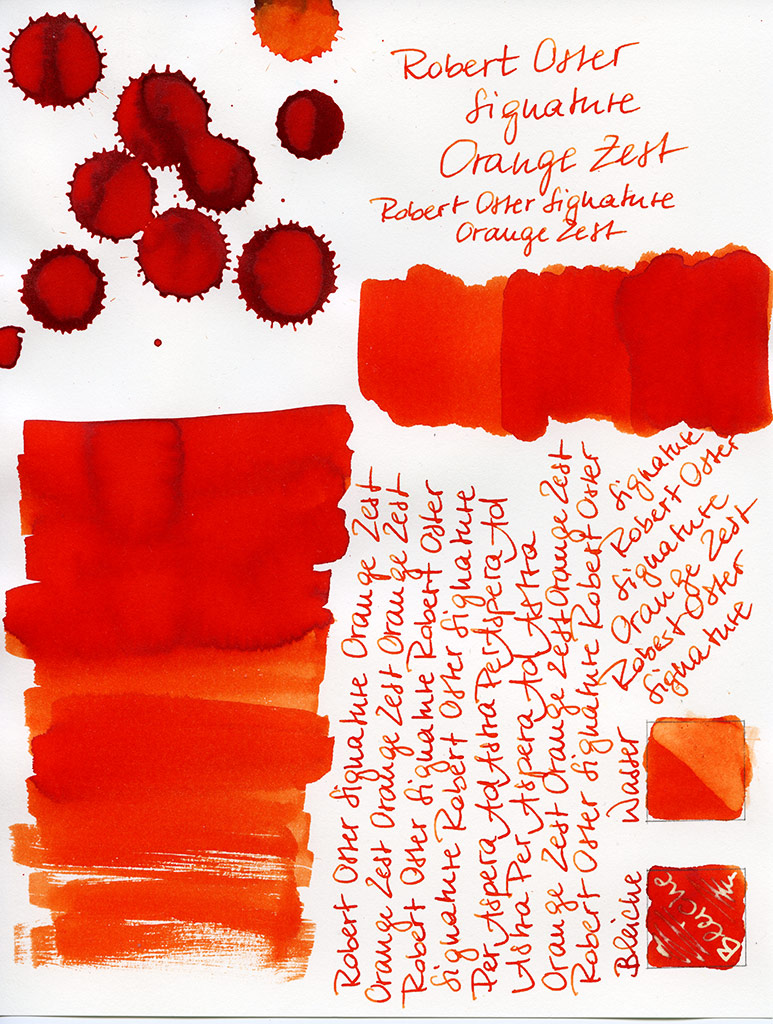 Robert Oster
Signature
Orange Zest
Robert Oster Signature
Orange Zest
Robert Oster Signature Orange Zest
Orange Zest Orange Zest Orange Zest
Robert Oster Signature Robert Oster
Signature Robert Oster Signature
Per Aspera Ad Astra Per Aspera Ad
Astra Per Aspera Ad Astra
Orange Zest Orange Zest Orange Zest
Robert Oster Signature Robert Oster
Signature
Robert Oster
Signature
Orange Zest
Robert Oster
Signature
Wasser
Bleiche
Bleiche